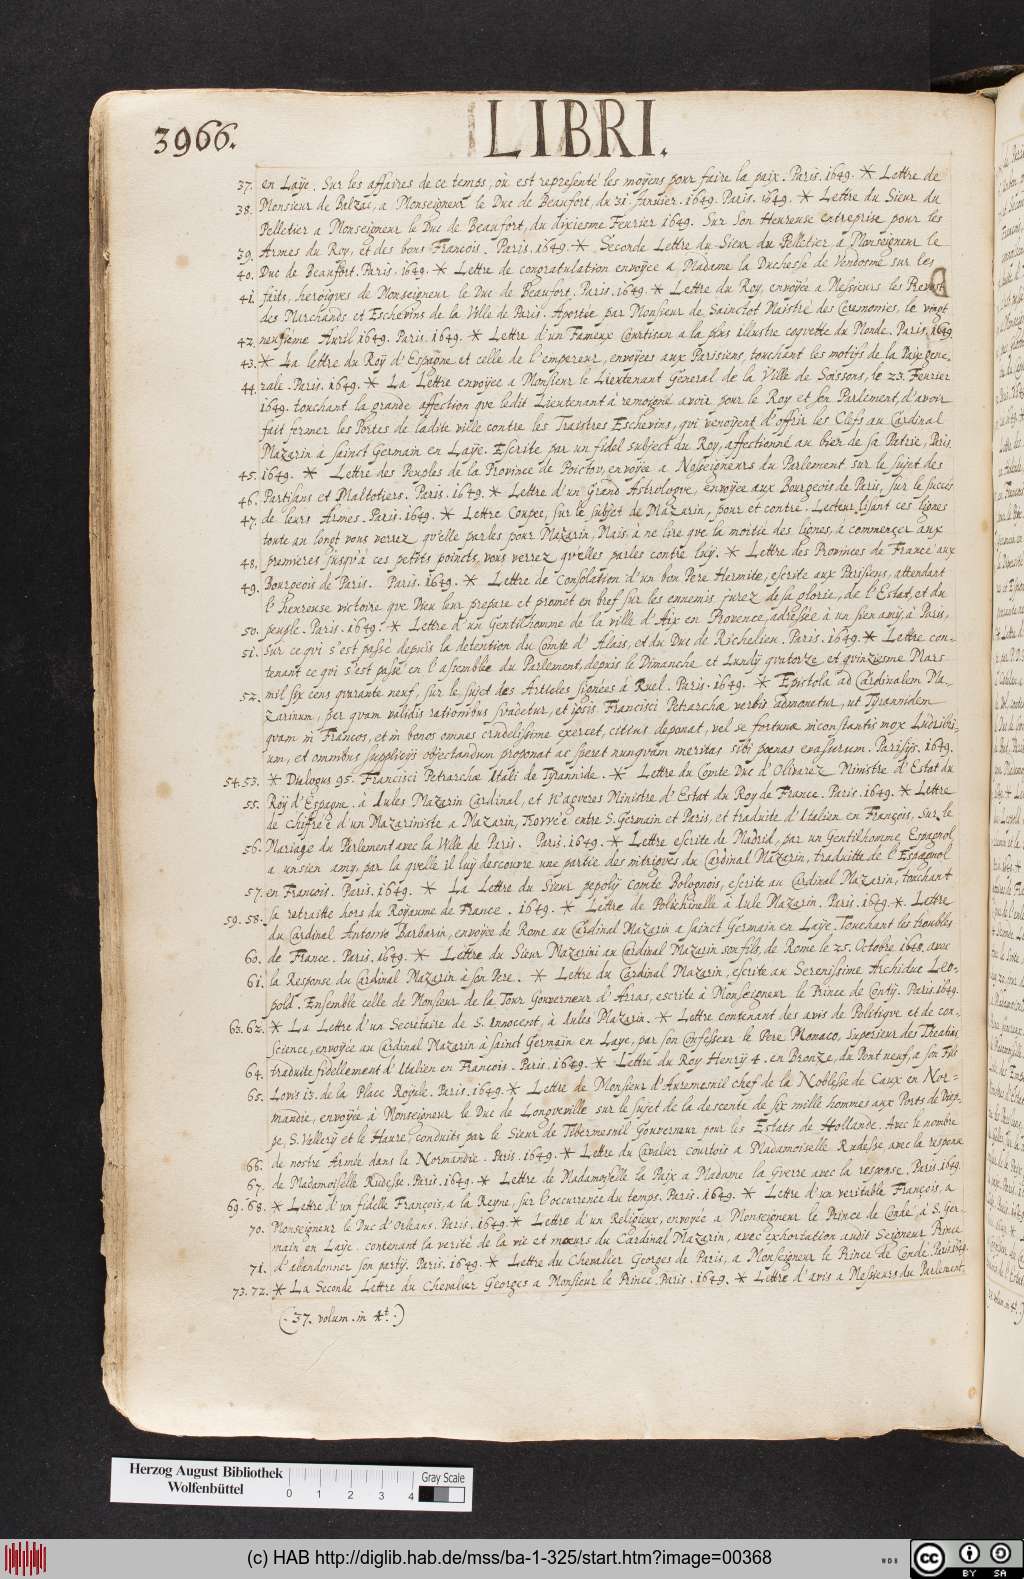 3966.
LIBRI.
37. en Laÿe. Sur les affaires de ce temps, où est representé les moÿens pour faire la paix. Paris. 1649. * Lettre de
38. Monsieur de Balzac, a Monseigneur le Duc de Beaufort, du 21. Janvier. 1649. Paris. 1649. * Lettre du Sieur du
Pelletier a Monseigneur le Duc de Beaufort, du dixiesme Fevrier 1649. Sur son Heureuse entreprise pour les
39. Armes du Roy, et des bons François. Paris. 1649. * Seconde Lettre du Sieur du Pelletier a Monseigneur le
40. Duc de Beaufort. Paris. 1649. * Lettre de congratulation envoÿée a Madame la Duchesse de Vendosme sur les
41. faits, heroïqves de Monseigneur le Duc de Beaufort. Paris. 1649. * Lettre du Roy, envoÿée a Messieurs les Prevost
des Marchands et Eschevins de la Ville de Paris. Aportée par Monsieur de Sainctot Maistre des Ceremonies, le vingt
42. neufieme Avril 1649. Paris. 1649. * Lettre d'un Fameux Courtisan a la plus illustre coqvette du Monde. Paris. 1649
43. * La lettre du Roÿ d'Espagne et celle de l'empereur, envoÿées aux Parisiens, touchant les motifs de la Paix gene-
44. rale. Paris. 1649. * La Lettre envoÿée a Monsieur le Lieutenant General de la Ville de Soissons, le 23. Fevrier
1649. touchant la grande affection qve ledit Lieutenant à temoigné avoir pour le Roy et son Parlement, d'avoir
fait fermer les Portes de ladite ville contre les Traistres Eschevins, qui venoÿent d'offrir les Clefs au Cardinal
Mazarin à sainct Germain en Laÿe. Escrite par un fidel subject du Roy, affectionné au bien de sa Patrie, Paris
45. 1649. * Lettre des Peuples de la Province de Poictov, envoÿée a Nosseigneurs du Parlement sur le sujet des
46. Partisans et Maltotiers. Paris. 1649. * Lettre d'un Grand Astrologve, envoÿée aux Bourgeois de Paris, sur le succes
47. de leurs Armes. Paris. 1649. * Lettre Coupee, sur le subjet de Mazarin, pour et contre. Lecteur, lisant ces lignes
toute au long vous verrez qu'elle parles pour Mazarin, Mais à ne lire qve la moitie des lignes, à commençer aux
48. premieres jusqu'à ces petits poincts, vous verrez qu'elles parles contre luÿ. * Lettre des Provinces de France aux
49. Bourgeois de Paris. Paris. 1649. * Lettre de Consolation d'un bon Pere Hermite, escrite aux Parisiens, attendant
l'heureuse victoire qve Dieu leur prepare et promet en bref sur les ennemis jurez de sa glorie, de l'Estat, et du
50. peuple. Paris. 1649. * Lettre d'un Gentilhomme de la ville d'Aix en Provence, adressée à un sien amÿ, à Paris,
51. Sur ce qvi s'est passé depuis la detention du Comte d'Alais, et du Duc de Richelieu. Paris. 1649. * Lettre con-
tenant ce qvi s'est passé en l'assemblée du Parlement, depuis le Dimanche et Lundÿ qvatorze et qvinziesme Mars
52. mil six cens qvarante neuf, sur le sujet des Articles signées á Ruel. Paris. 1649. * Epistola ad Cardinalem Ma-
zarinum, per qvam validis rationibus svadetur, et ipsis Francisci Petrarchæ verbis admonetur, ut Tyrannidem
qvam in Francos, et in bonos omnes crudelissime exercet, citius deponat, vel se fortunæ inconstantis mox Ludibri-
um, et omnibus supplicÿs objectandum proponat ac speret nunqvam meritas sibi pœnas evasurum. Parisÿs. 1649.
54. 53. * Dialogus 95. Francisci Petrarchæ Itali de Tÿrannide. * Lettre du Comte Duc d'Olivarez Ministre d'Estat du
55. Roÿ d'Espagne. à Jules Mazarin Cardinal, et n'agveres Ministre d'Estat du Roy de France. Paris. 1649. * Lettre
de chifrée d'un Mazariniste a Mazarin, Trovvée entre S. Germain et Paris, et traduite d'Italien en François, Sur le
56. Mariage du Parlement avec la Ville de Paris. Paris. 1649. * Lettre escrite de Madrid, par un Gentilhomme Espagnol
a un sien amy, par la qvelle il luÿ descouvre une partie des intrigves du Cardinal Mazarin, traduitte de l'Espagnol
57. en François. Paris. 1649. * La Lettre du Sieur pepolÿ comte Bolognois, escrite au Cardinal Mazarin, touchant
59. 58. sa retraitte hors du Royaume de France. 1649. * Lettre de Polichinelle à Jule Mazarin. Paris. 1649. * Lettre
du Cardinal Antonio Barbarin, envoÿée de Rome au Cardinal Mazarin a sainct Germain en Laÿe. Touchant les troubles
60. de France. Paris. 1649. * Lettre du Sieur Mazarini au Cardinal Mazarin son fils, de Rome le 25. Octobre 1648. avec
61. la Response du Cardinal Mazarin à son Pere. * Lettre du Cardinal Mazarin, escrite au Serenissime Archiduc Leo-
pold. Ensemble celle de Monsieur de la Tour Gouverneur d'Arras, escrite à Monseigneur le Prince de Contÿ. Paris. 1649.
63. 62. * La Lettre d'un Secretaire de S. Innocent, à Jules Mazarin. * Lettre contenant des avis de Politiqve et de con-
science, envoÿée au Cardinal Mazarin á sainct Germain en Laye, par son Confesseur le Pere Monaco, Superieur des Theatins
64. traduite fidellement d'Italien en Francois. Paris. 1649. * Lettre du Roy Henrÿ 4. en Bronze, du Pont neuf, a son Fils
65. Lovis 13. de la Place Royale. Paris. 1649. * Lettre de Monsieur d'Auremesnil chef de la Noblesse de Caux en Nor-
mandie, envoÿée à Monseigneur le Duc de Longveville sur le sujet de la descente de six mille hommes aux Ports de Diep-
pe, S. Vallerÿ et le Havre, conduits par le Sieur de Tibermesnil Gouverneur pour les Estats de Hollande. Avec le nombre
66. de nostre Armée dans la Normandie. Paris. 1649. * Lettre du Cavalier courtois a Madamoiselle Rudesse avec la response
67. de Madamoiselle Rudesse. Paris. 1649. * Lettre de Madamoiselle la Paix a Madame la Gverre avec la response. Paris. 1649.
69. 68. * Lettre d'un fidelle François, a la Reÿne, sur l'occurrence du temps. Paris. 1649. * Lettre d'un veritable François, a
70. Monseigneur le Duc d'Orleans. Paris. 1649. * Lettre d'un Religieux, envoÿée a Monseigneur le Prince de Condé, à S. Ger-
main en Laÿe. contenant la verité de la vie et mœurs du Cardinal Mazarin, avec exhortation audit Seigneur Prince
71. d'abandonner son partÿ. Paris. 1649. * Lettre du Chevalier Georges de Paris, a Monseigneur le Prince de Condé. Paris. 1649.
73. 72. * La Seconde Lettre du Chevalier Georges a Monsieur le Prince. Paris. 1649. * Lettre d'avis a Messieurs du Parlement
(. 37. volum. in 4t.)
Herzog August Bibliothek
Wolfenbüttel
0 1 2 3 4
Gray Scale
(c) HAB http://diglib.hab.de/mss/ba-1-325/start.htm?image=00368
WDB
cc BY SA